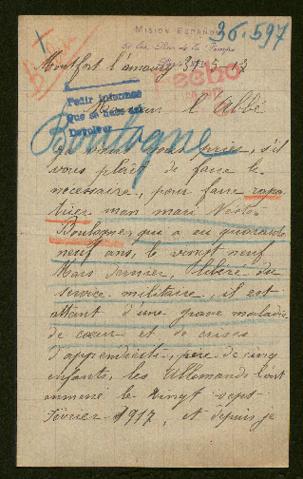 36.597
MISION ESPAÑOLA
Montfort l'amaury 31-5-17
Hecho
Monsieur l'Abbé
Pedir informes
Que se haba del
Devolver
Boulogne
Je viens vous prier, s'il
vous plaît de faire le
nécessaire, pour faire rapa-
trier mon mari Victor
Boulogne, qui a eu quarante
neuf ans, le vingt neuf
Mars dernier, libéré du
service militaire, il est
atteint d'une grave maladie
de cœur et de crises
d'appendicite, père de cinq
enfants, les Allemands l'ont
emmené le vingt sept
Février 1917, et depuis je